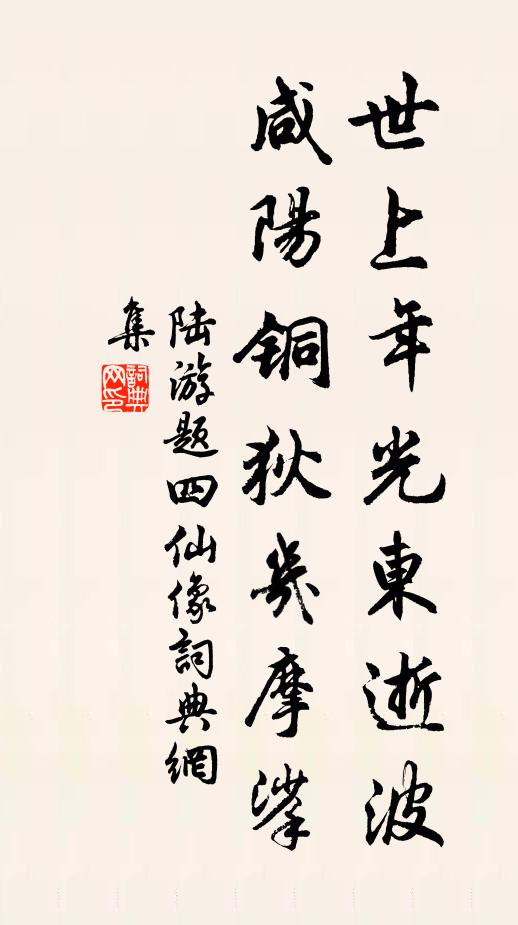 世上年光東逝波
咸陽銅狄幾摩挲
陸游題四仙像詞典網
集
詞典網印